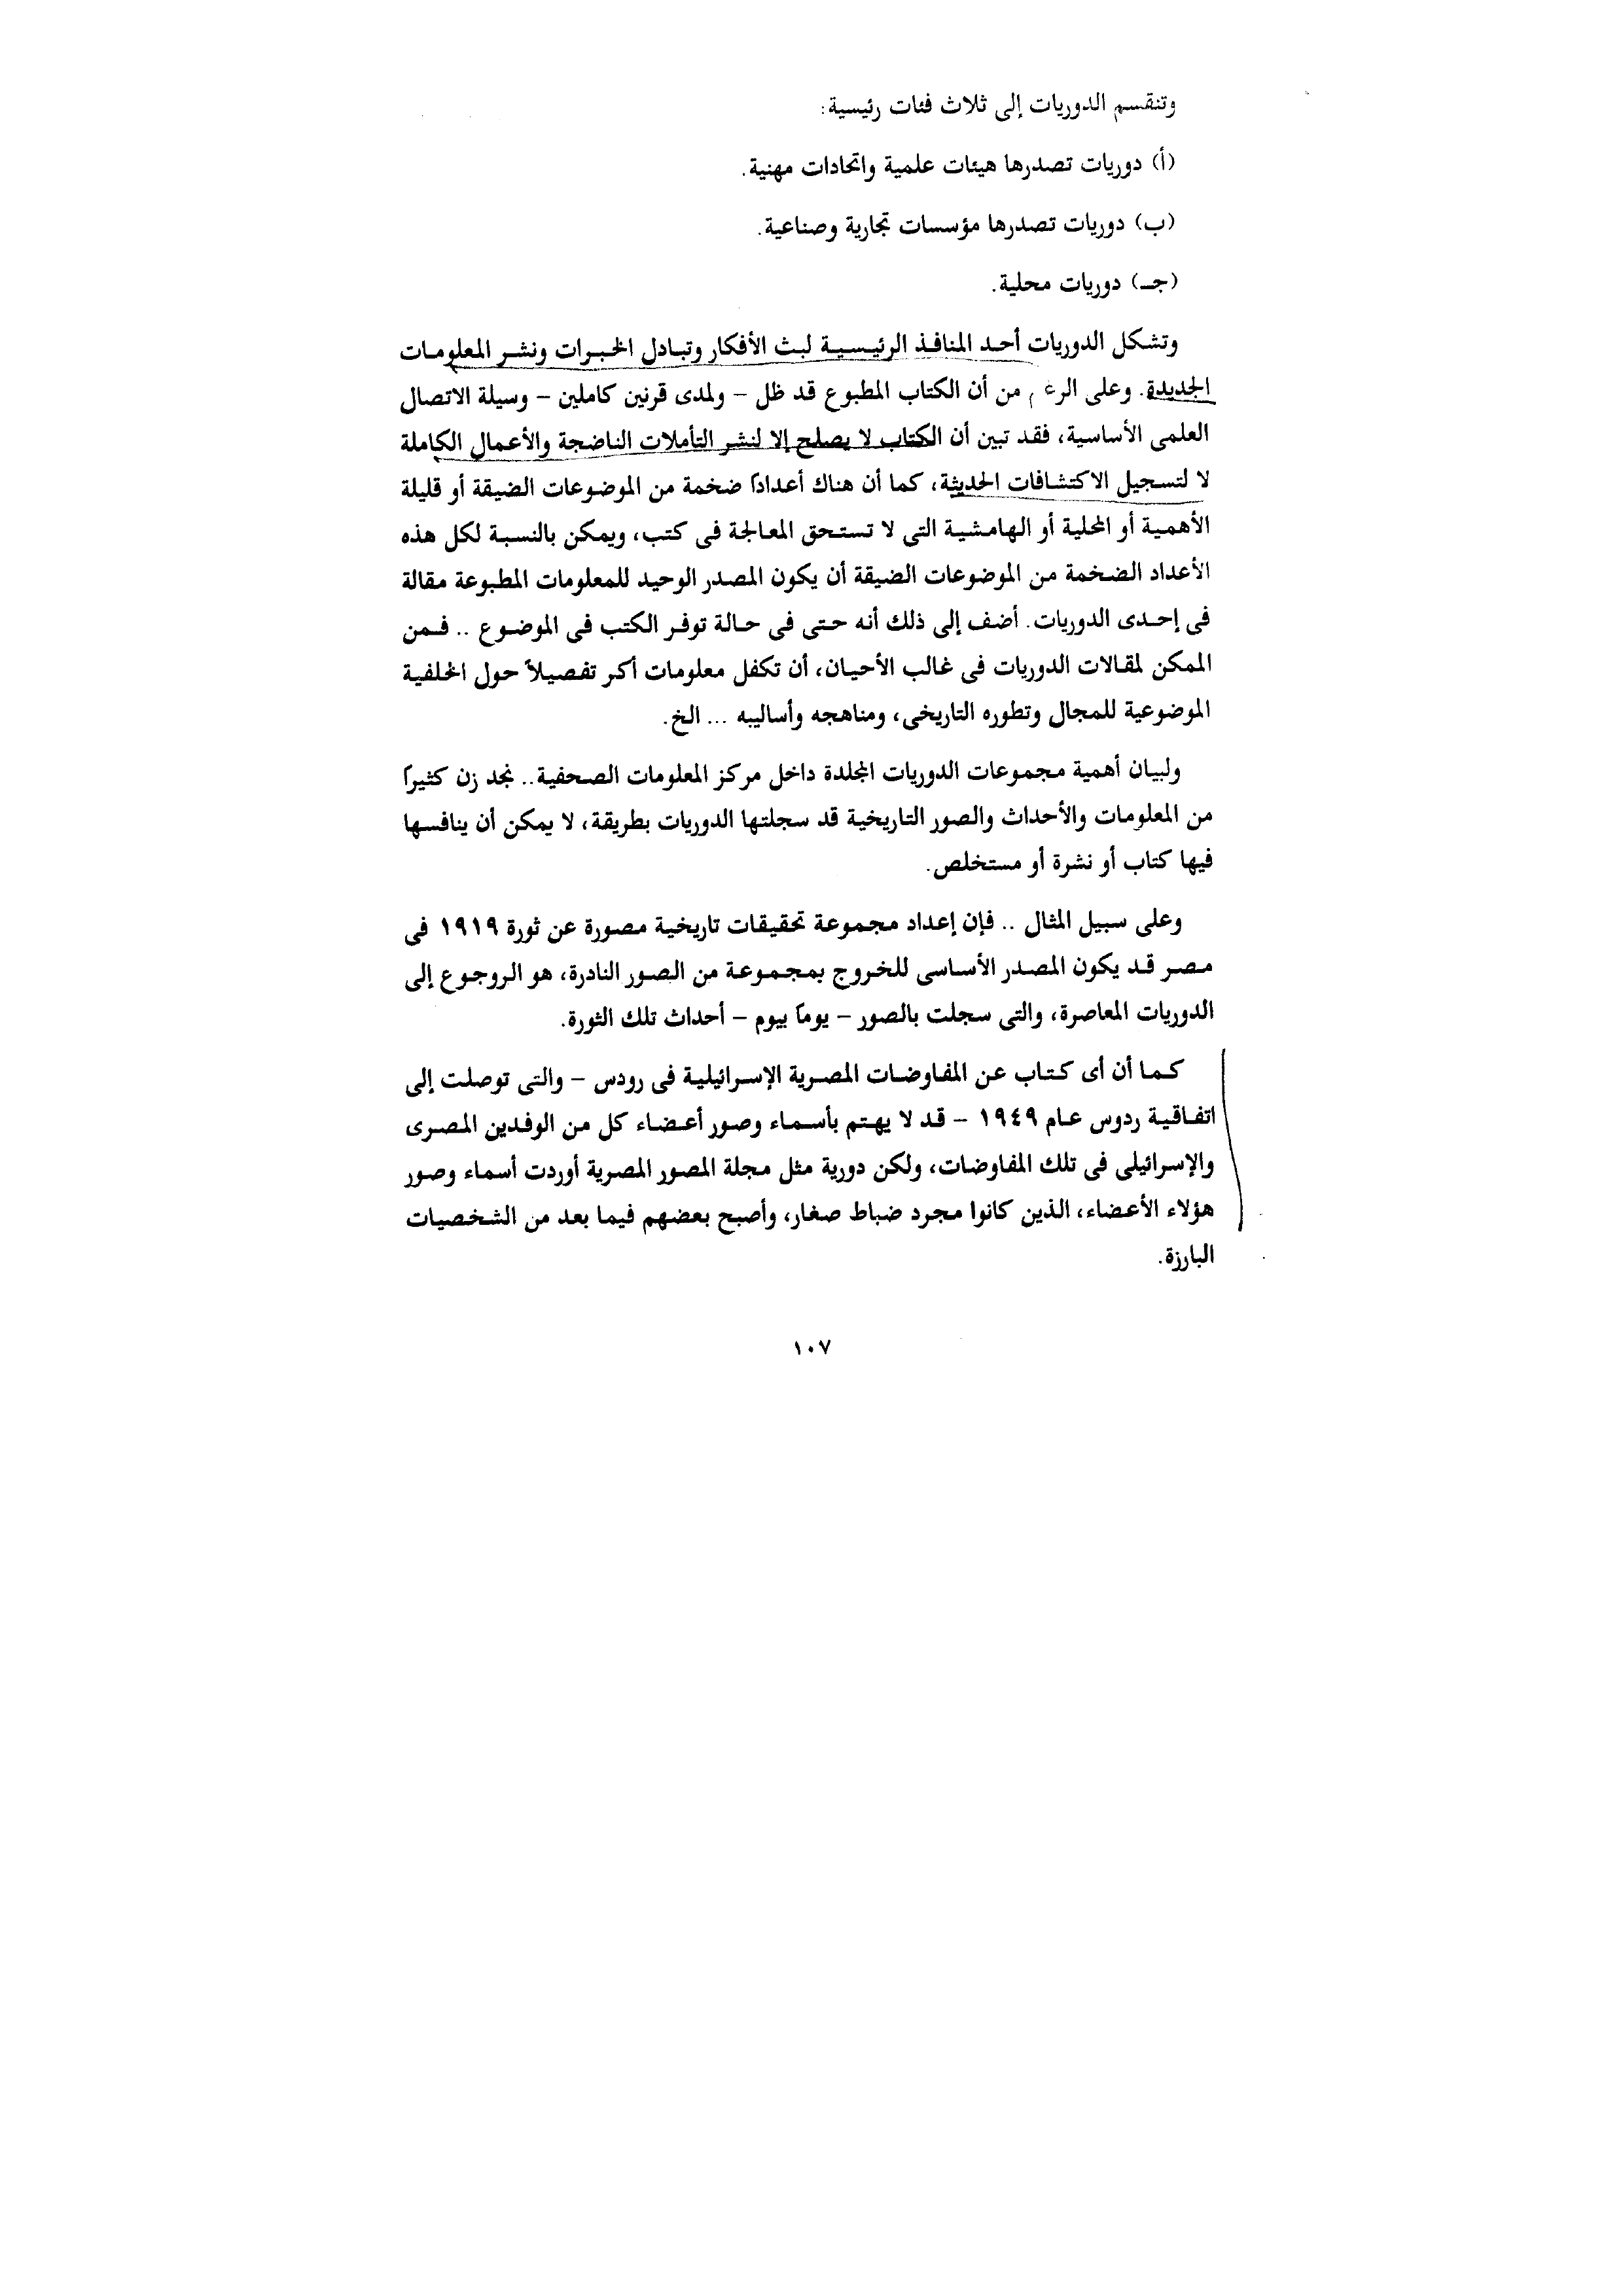 وتنقسم الدوريات إلى ثلاث فئات رئيسية:
(أ) دوريات تصدرها هيئات علمية واتحادات مهنية.
(ب) دوريات تصدرها مؤسسات تجارية وصناعية.
(جـ) دوريات محلية.
وتشكل الدوريات أحد المنافذ الرئيسية لبث الأفكار وتبادل الخبرات ونشر المعلومات
الجديدة. وعلى من أن الكتاب المطبوع قد ظل – ولمدى قرنين كاملين – وسيلة الاتصال
العلمى الأساسية، فقد تبين أن الكتاب لا يصلح إلا لنشر التأملات الناضجة والأعمال الكاملة
لا لتسجيل الاكتشافات الحديثة، كما أن هناك أعدادًا ضخمة من الموضوعات الضيقة أو قليلة
الأهمية أو المحلية أو الهامشية التى لا تستحق المعالجة فى كتب، ويمكن بالنسبة لكل هذه
الأعداد الضخمة من الموضوعات الضيقة أن يكون المصدر الوحيد للمعلومات المطبوعة مقالة
فى إحدى الدوريات. أضف إلى ذلك أنه حتى فى حالة توفر الكتب فى الموضوع .. فمن
الممكن لمقالات الدوريات فى غالب الأحيان، أن تكفل معلومات أكر تفصيلاً حول الخلفية
الموضوعية للمجال وتطوره التاريخى، ومناهجه وأساليبه ... الخ.
ولبيان أهمية مجموعات الدوريات المجلدة داخل مركز المعلومات الصحفية.. نجد زن كثيرًا
من المعلومات والأحداث والصور التاريخية قد سجلتها الدوريات بطريقة، لا يمكن أن ينافسها
فيها كتاب أو نشرة أو مستخلص.
وعلى سبيل المثال .. فإن إعداد مجموعة تحقيقات تاريخية مصورة عن ثورة ١٩١٩ فى
مصر قد يكون المصدر الأساسى للخروج بمجموعة من الصور النادرة، هو الروجوع إلى
الدوريات المعاصرة، والتى سجلت بالصور – يومًا بيوم – أحداث تلك الثورة.
كما أن أى كتاب عن المفاوضات المصرية الإسرائيلية فى رودس – والتى توصلت إلى
اتفاقية ردوس عام ١٩٤٩ – قد لا يهتم بأسماء وصور أعضاء كل من الوفدين المصرى
والإسرائيلى فى تلك المفاوضات، ولكن دورية مثل مجلة المصور المصرية أوردت أسماء وصور
هؤلاء الأعضاء، الذين كانوا مجرد ضباط صغار، وأصبح بعضهم فيما بعد من الشخصيات
البارزة.
١٠٧